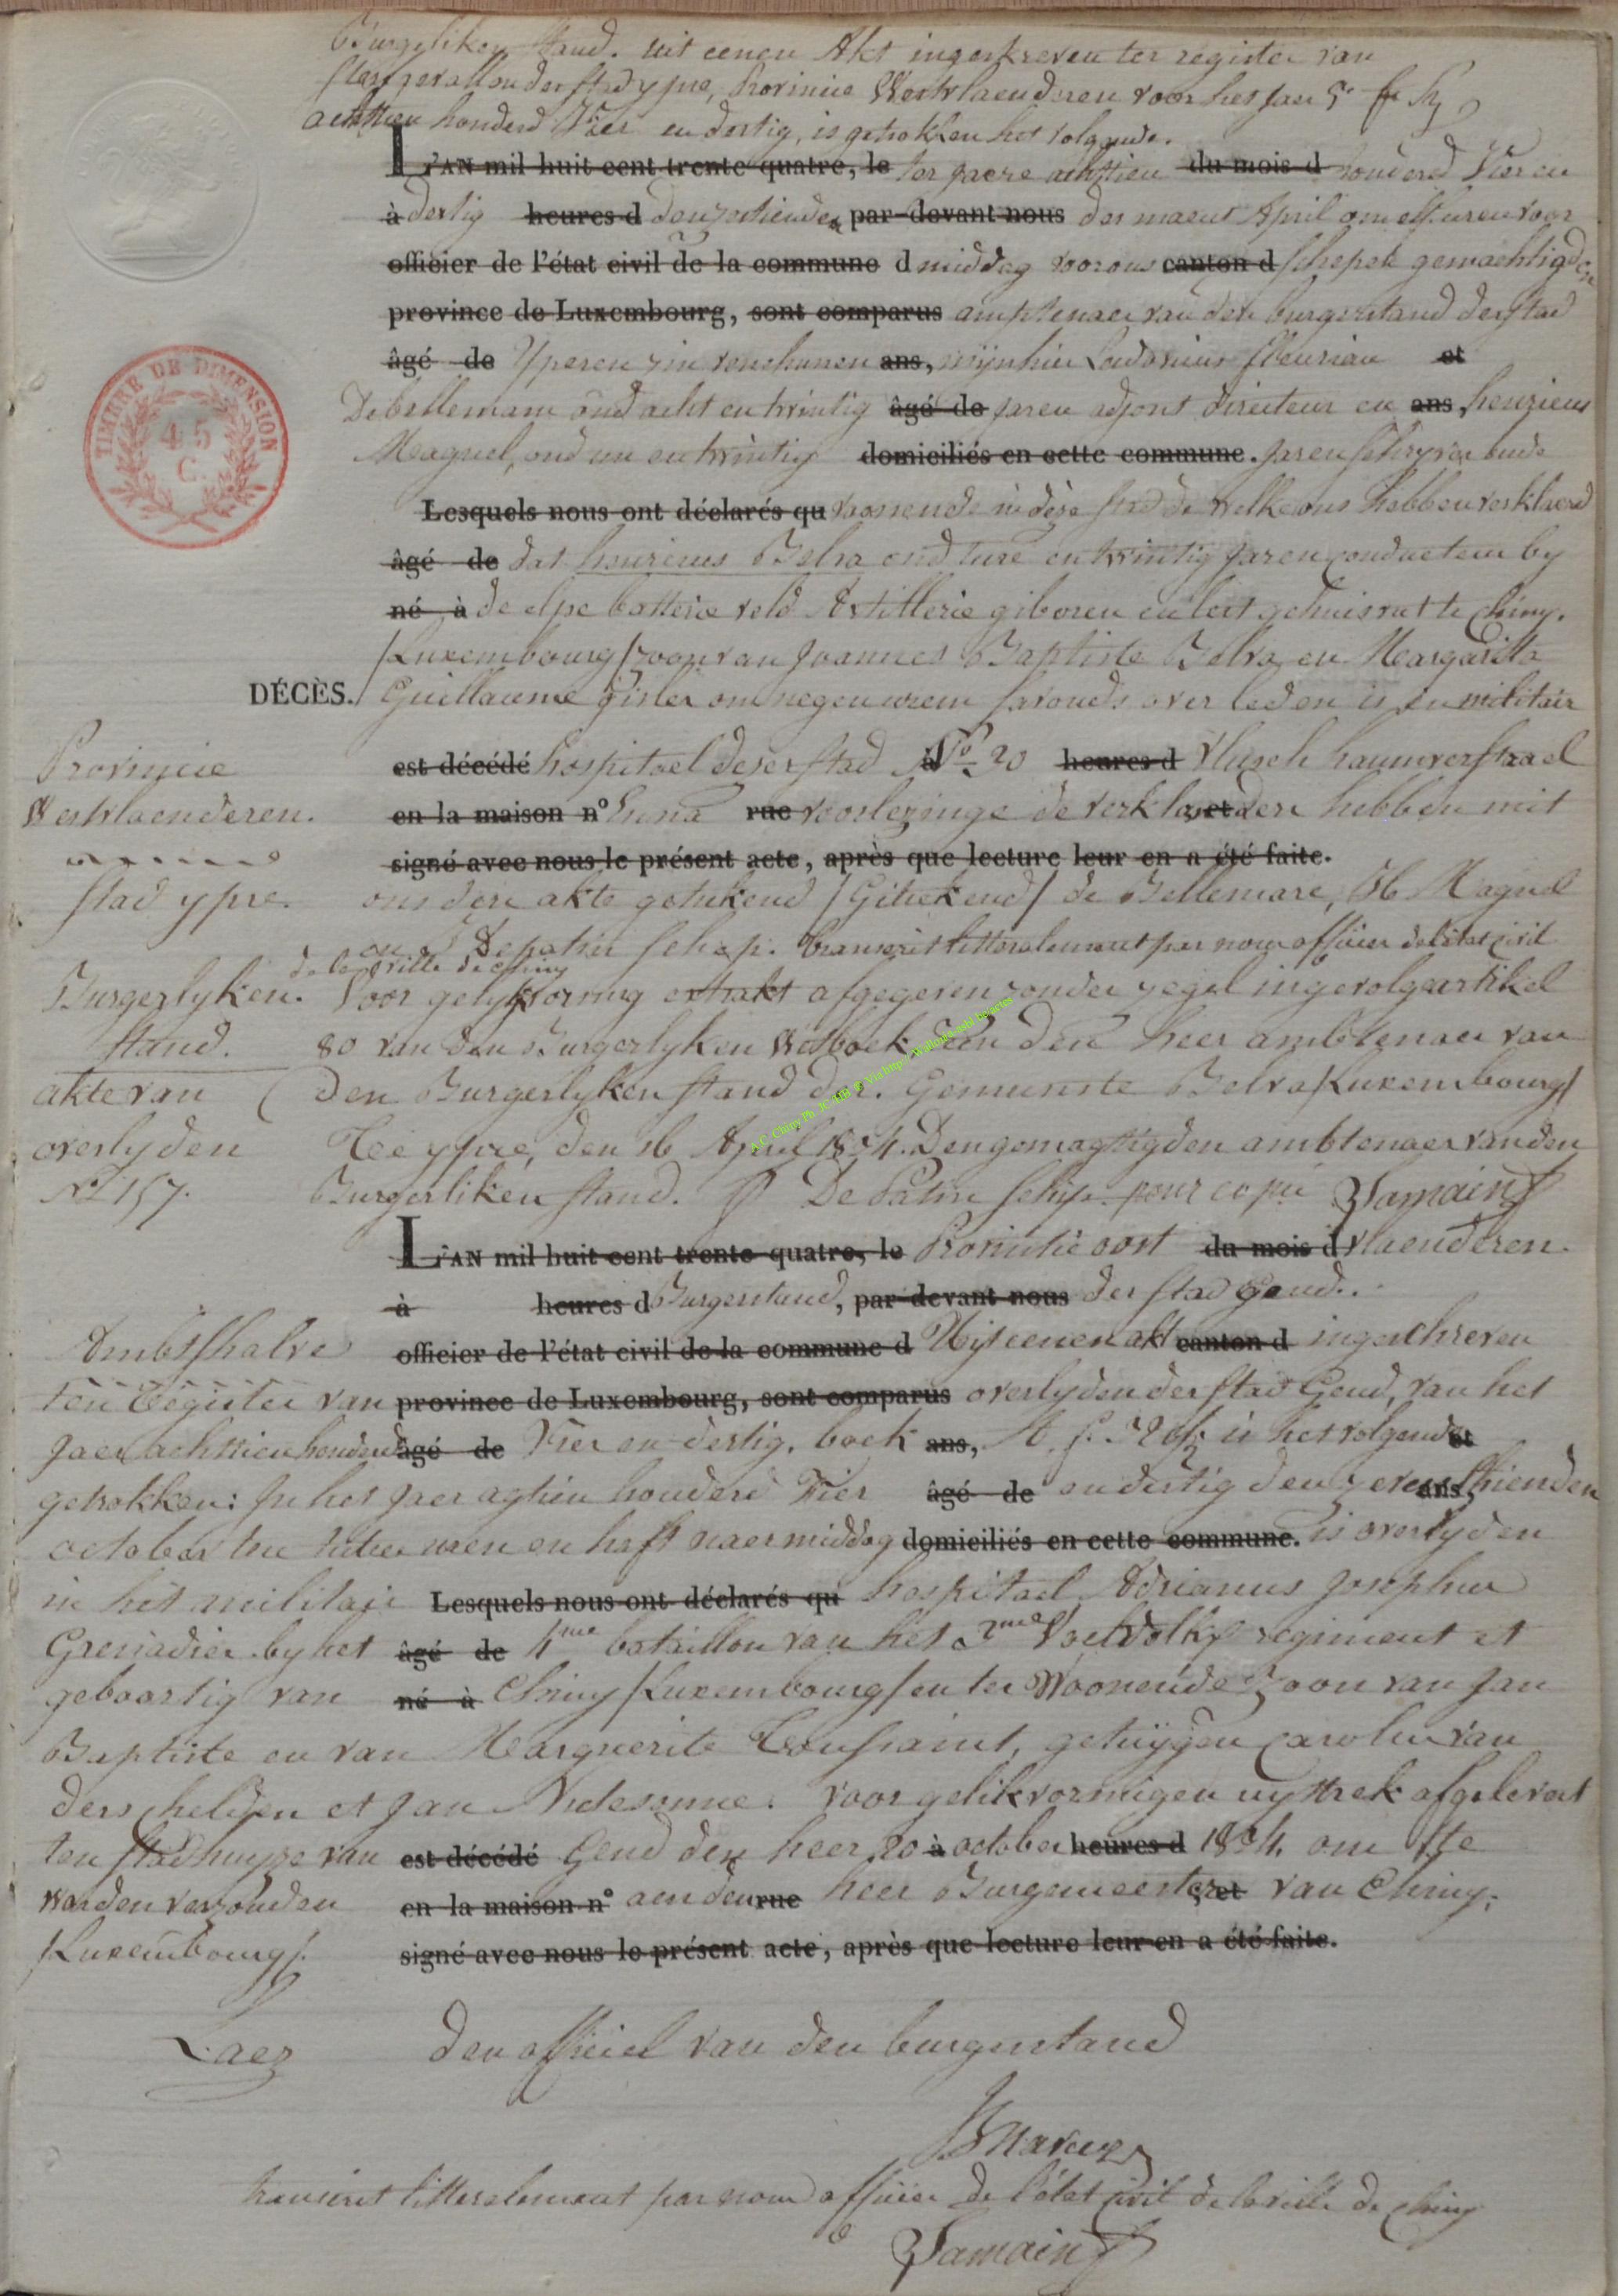 Burgeliken stand. uit eenen Akt ingeskreven ter register van
Sterfgevallen der stad ypre, Provincie Westvlaenderen voor het jaer
achttien honderd Vier en dertig, is getrokken het volgende.
L'AN mil huit cent trente-quatre, le ter jaere achttien du mois d honderd Vier en
à dertig heures d den zestienden par-devant nous der maent April om elf uren voor
officier de l'état civil de la commune d middag voor ons canton d schepen gemachtigden
province de Luxembourg, sont comparus amptenaer van den burgerstand der stad
âgé de Yperen zin verschenen ans, mijnhin Ludovicus fleuriau et
Debellemare oud acht en twintig âgé de jaren adjoint directeur en ans, henricus
Magnel, oud un en twintig domiciliés en cette commune. jaren schryver beide
Lesquels nous ont déclarés qu woonende in dese stad de welke ons hebben verklaerd
âgé de dat henricus Belva oud twee en twintig jaren conducteur by
né à de elfde batterie veld Artillerie giboren en lest gehuisvat te Chiny.
/Luxembourg/ zoon van Joannes Baptiste Belva en Margarita
DÉCÈS. Guillaume gister om negen uren savonds overleden is in militair
est décédé hospitael deser stad à N° 20 heures d
en la maison n° rue voorlezinge de verklaerders et hebben mit
signé avec nous le présent acte, après que lecture leur en a été faite.
ons dese akte getekend /Getekend/ de Bellemare, H Magnel
en Depatin schep. transcrit littéralement par nous officier de l'état civil
de la ville de Chiny
Voor gelykvormig extrakt afgegeven zonder zegel ingevolge artikel
80 van den Burgerlyken Wetboek aen den heer ambtenaer van
den Burgerlyken stand der Gemeinste Belva /Luxembourg/
Tee ypre, den 16 April 1834. Den gemagtigden ambtenaer van den
Burgerliken stand. De Patin schep. pour copie Zamain
Provincie
Westvlaenderen.
stad ypre.
Burgerlyken.
stand.
akte van
overlyden
N° 157.
L'AN mil huit cent trente-quatre, le Provintie oost du mois d vlaenderen.
à heures d Burgerstand, par-devant nous der stad gend.
Ambtshalve officier de l'état civil de la commune d Uyt eenen akt canton d ingeschreven
ten register van province de Luxembourg, sont comparus overlyden der stad Gend, van het
jaer achttien honderd âgé de Vier en dertig. boek ans, is het volgende et
getrokken: In het jaer agtien honderd Vier âgé de en dertig den zeventhienden ans,
october ten uren en half naermiddag domiciliés en cette commune. is overlyden
in het militair Lesquels nous ont déclarés qu hospitael Adrianus Josephus
Grenadier by het âgé de 4me bataillon van het 2me Voetvolk regiment et
geboortig van né à Chiny /Luxembourg/ en ter Woonende Zoon van Jan
Baptiste en van Marguerite Toussaint, getuygen Carolus van
derschelden et Jan Videsonne. voor gelikvormigen uyttrek afgelevert
ten stadhuyze van est décédé Gend den heer 20 à october heures d 1834 om tte
worden verzonden en la maison n° aen den rue heer Burgemeester, et van Chiny,
/Luxembourg/. signé avec nous le présent acte, après que lecture leur en a été faite.
den officier van den burgerstand
transcrit litteralement par nous officier de l'état civil de la ville de Chiny
Zamain
TIMBRE DE DIMENSION
45
C.